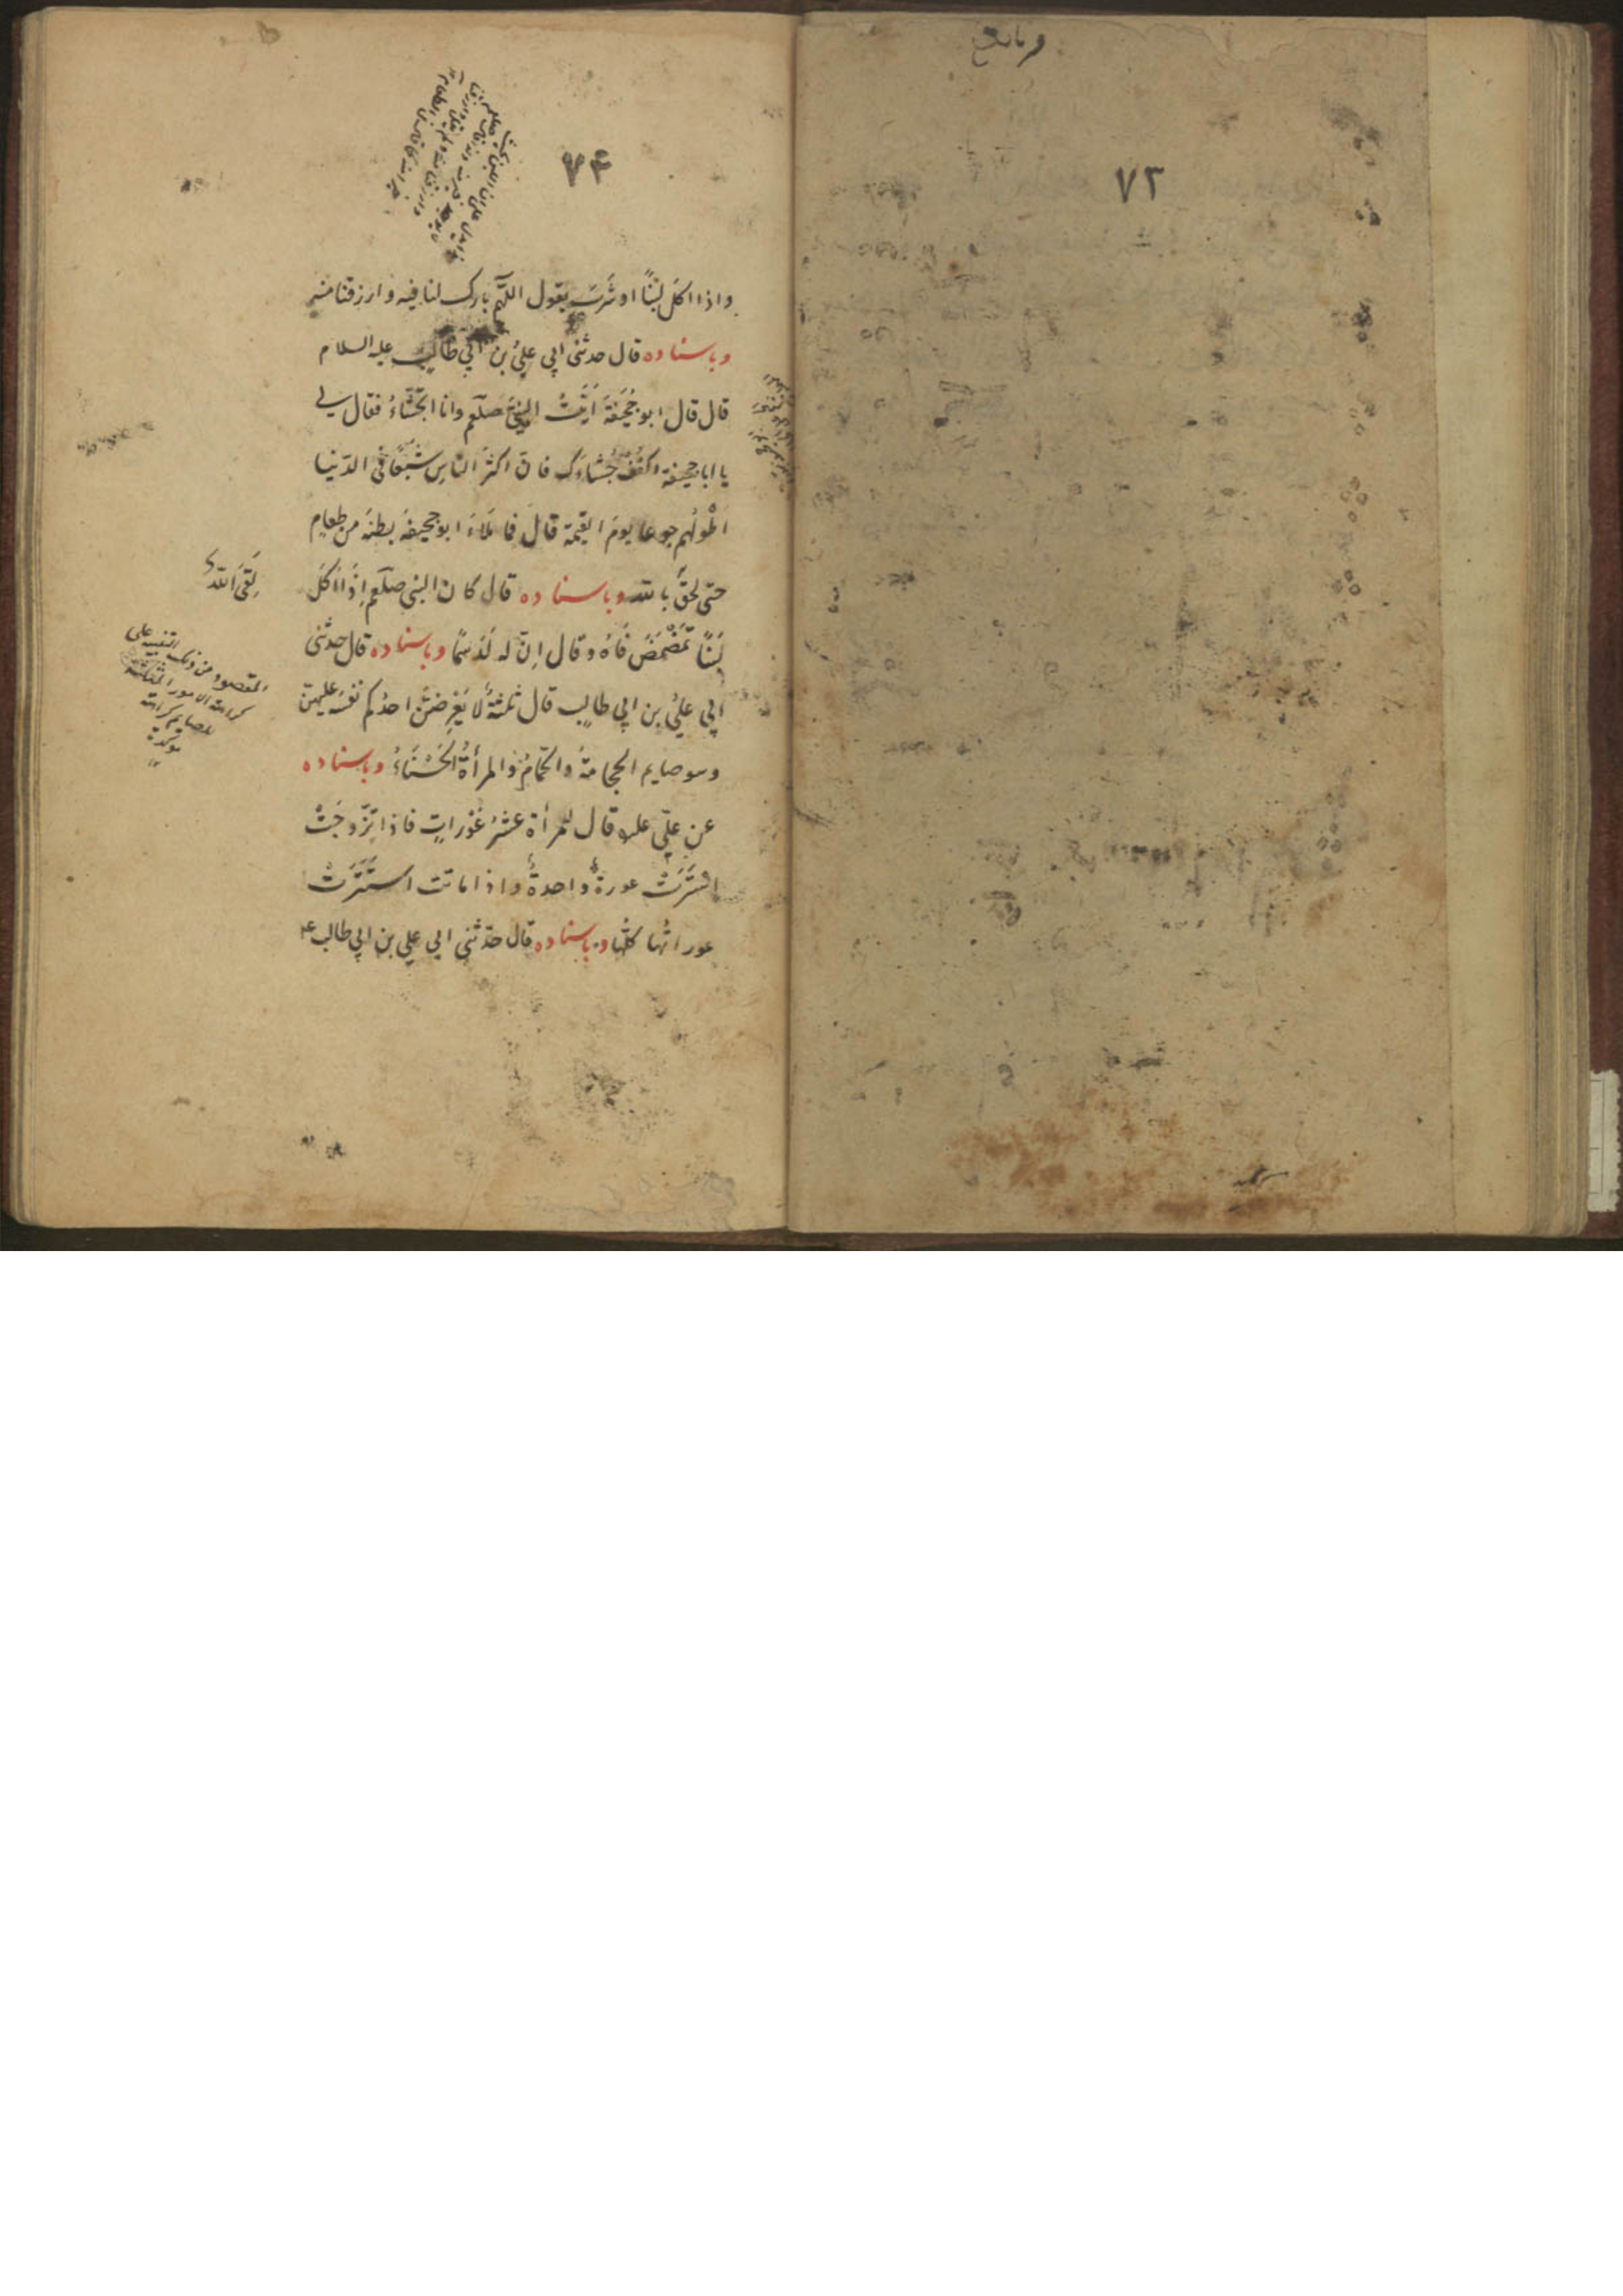 ٧٣
٧۴
واذا اكل لبنًا او شرب يقول اللّهم بارك لنا فيه وارزقنا منه
وباسناده قال حدثنى ابى علىُّ بن ابى طالبٍ عليه السلام
قال قال ابو جُحَيفةَ اَتَيْتُ النبىَّ صلعم وانا اتجشّاءُ فقال لى
يا ابا جحيفة اكفُفْ جُشاءَك فانّ اكثرَ النّاسِ شبَعًا فى الدّنيا
اَطْوَلُهم جوعا يومَ القيٰمة قالَ فما مَلَاءَ ابو جحيفةَ بطنَه من طعامٍ
حتى لحقَ باللّه وباسناده قال كان النبى صلعم اِذَا اَكَلَ
لَبَنًا تَمَضْمَضَ فَاهُ وقال اِنّ له لَدَسَمًا وباسناده قال حدثنى
ابى علىُّ بن ابى طالب قال ثلثةٌ لَا يَعْرِضَنَّ احدُكم نفسَه عليهنّ
وهو صايم الحجامةُ والحَمّامُ والمرأةُ الحَسْنَاءُ وباسناده
عن علىّ علیه قال للمرأة عشرُ عَوْراتٍ فاذا تزوجَتْ
اسْتَتَرَتْ عورةٌ واحدةٌ واذا ماتت استَتَرَتْ
عوراتُها كلُّها وباسناده قال حدّثنى ابى على بن ابى طالب ع
لَقِىَ اللّهَ
المقصود من ذلك التنبيه على
كراهة الامور الثلثة
للصايم كراهة
موكدة